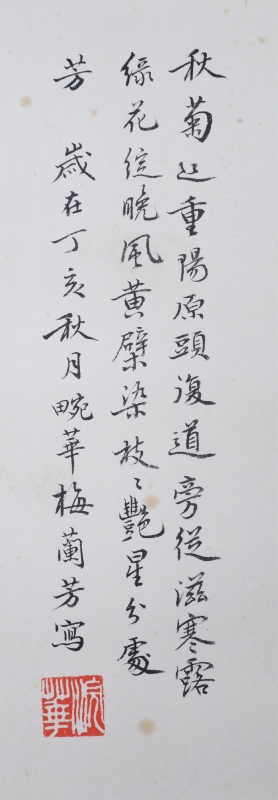 秋菊近重陽原頭復道旁從滋寒露
綠花綻晚風黃檗染枝〻艷星分處
芳　歲在丁亥秋月畹華梅蘭芳寫
浣華